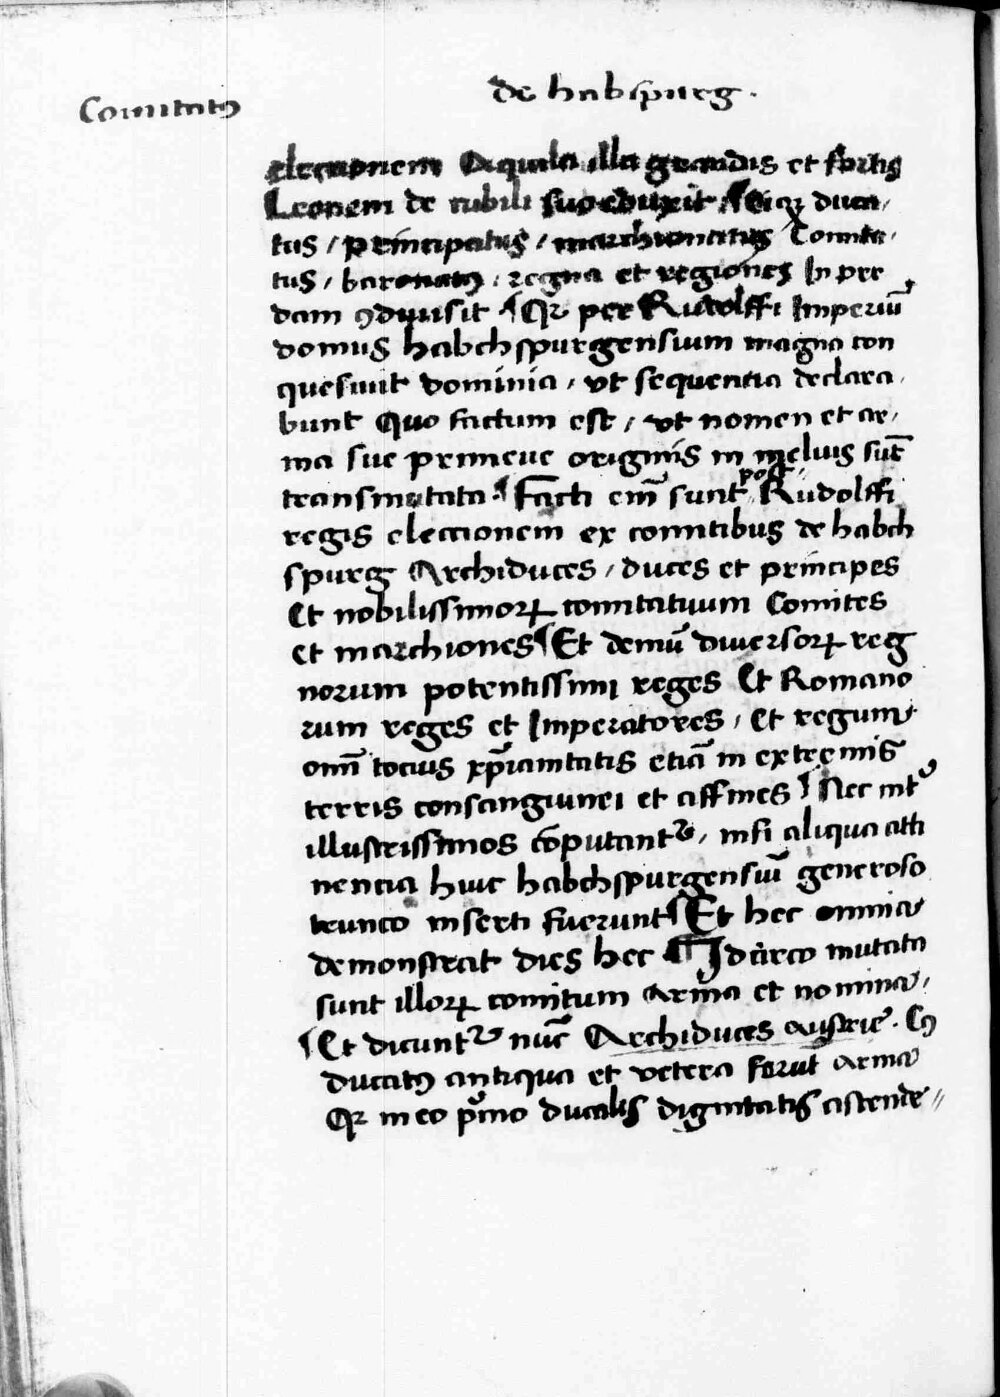 Comitatꝰ
de habspurg.
eleccionem Aquila illa grandis et fortis
Leonem de cubili suo eduxit ¶ Sicqꝫ duca/
tus / principatus / marchionatus Comita/
tus / baronatꝰ / regna et regiones In pre
dam ꝯduxsit ¶ Qꝛ per Rudolffi Imperiū
domus habchspurgensium magna con
quesiuit dominia / vt sequencia declara/
bunt Quo factum est / vt nomen et ar/
ma sue primeue originis in melius sūt
transmutata ¶ Facti em̄ sunt post Rudolffi
regis eleccionem ex comitibus de habch
spurg Archiduces / duces et principes
Et nobilissimorꝝ comitatuum Comites
et marchiones ¶ Et demū diuersorꝝ reg
norum potentissimi reges Et Romano
rum reges et Imperatores / Et regum
om̄ tocius xp̄ianitatis etiā in extremis
terris consanguinei et affines ¶ Nec intꝰ
illustrissimos cōputantᷣ / nisi aliqua atti
nencia huic habchspurgensiū generoso
trunco inserti fuerunt ¶ Et hec omnia
demonstrat dies hec ¶ Idcirco mutata
sunt illorꝝ comitum Arma et nomina /
¶ Et dicuntᷣ nūc Archiduces Austrie. Cꝰ
ducatꝰ antiqua et vetera ferūt Arma
Qꝛ in eo pͥmo ducalis dignitatis ascende //